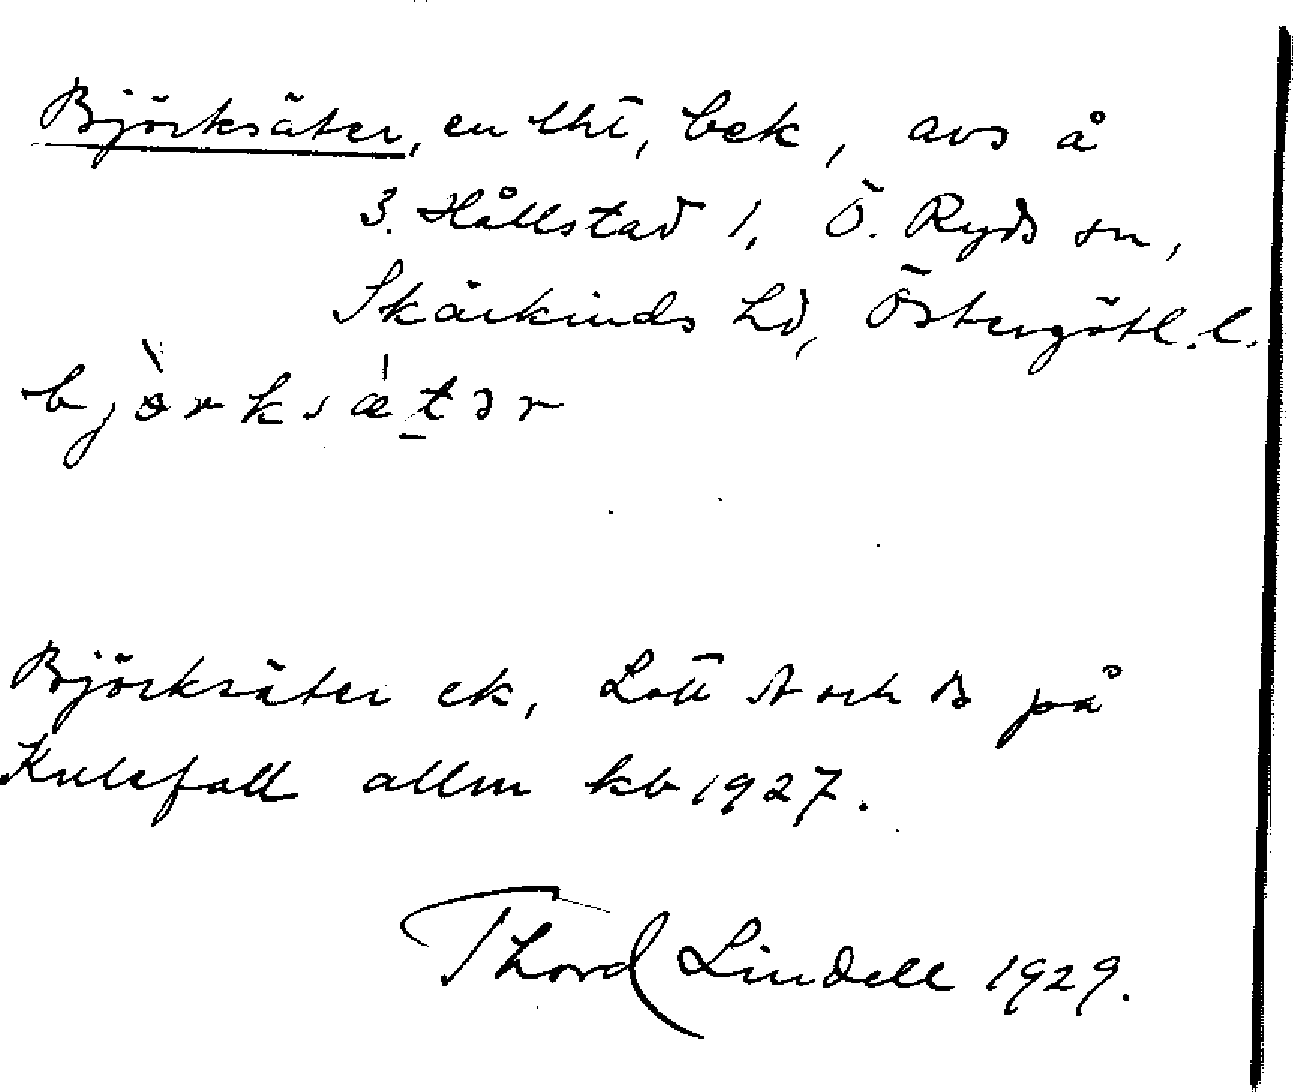 Björksäter, en lht, bek, avs å
3. Hållstad 1, Ö. Ryds sn,
Skärkinds hd, Östergötl. l.
bjòrksǽtər
Björksäter ek, Lott A och B på
Kulefall allm kb 1927.
Thord Lindell 1929.